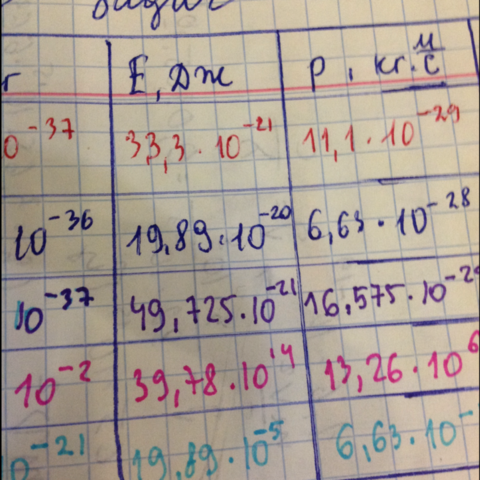 г E, Дж p, кг·м/с
0⁻³⁷ 33,3·10⁻²¹ 11,1·10⁻²⁹
10⁻³⁶ 19,89·10⁻²⁰ 6,63·10⁻²⁸
10⁻³⁷ 49,725·10⁻²¹ 16,575·10⁻²⁹
10⁻² 39,78·10¹⁴ 13,26·10⁶
0⁻²¹ 19,89·10⁻⁵ 6,63·10⁻